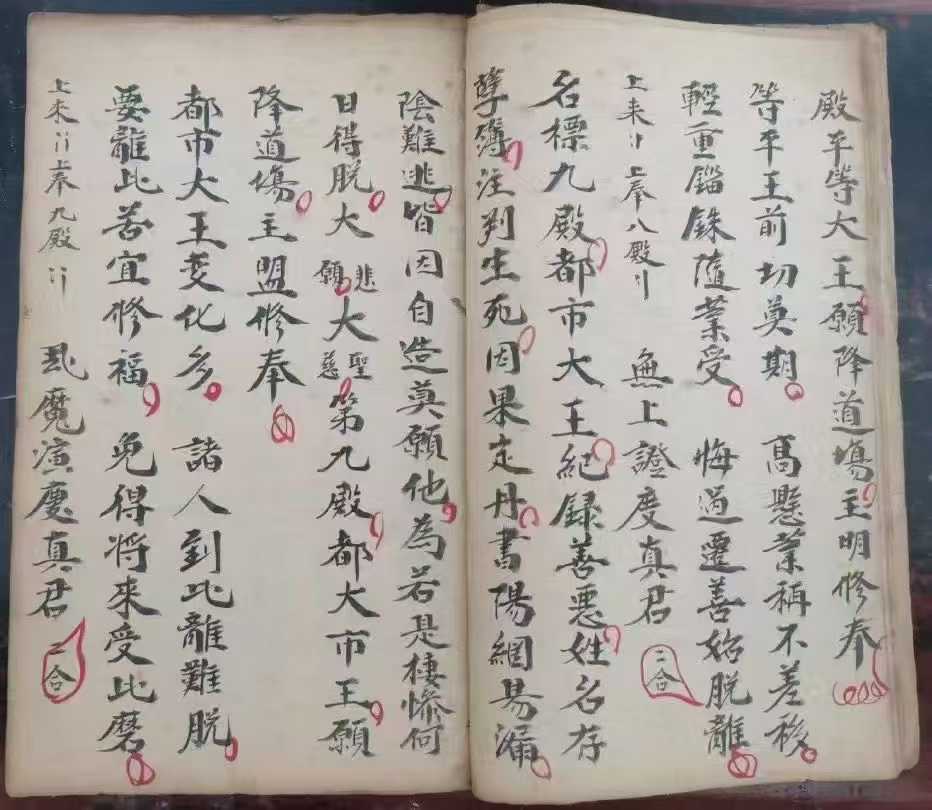 殿平等大王願降道場主明修奉
等平王前切莫期 高懸業稱不差移
輕重錙銖隨業受 悔過遷善始脫離
上來〃上奉八殿〃 無上證度真君 二合
名標九殿都市大王紀録善惡姓名存
孽簿注判生死因果定丹書陽網易漏
陰難逃皆因自造莫願他為若是棲慘何
日得脫大悲願大聖慈第九殿都大市王願
降道場主盟修奉
都市大王变化多 諸人到此離難脫
要離此苦宜修福 免得將來受此磨
上来〃上奉九殿〃 魔演慶真君 二合